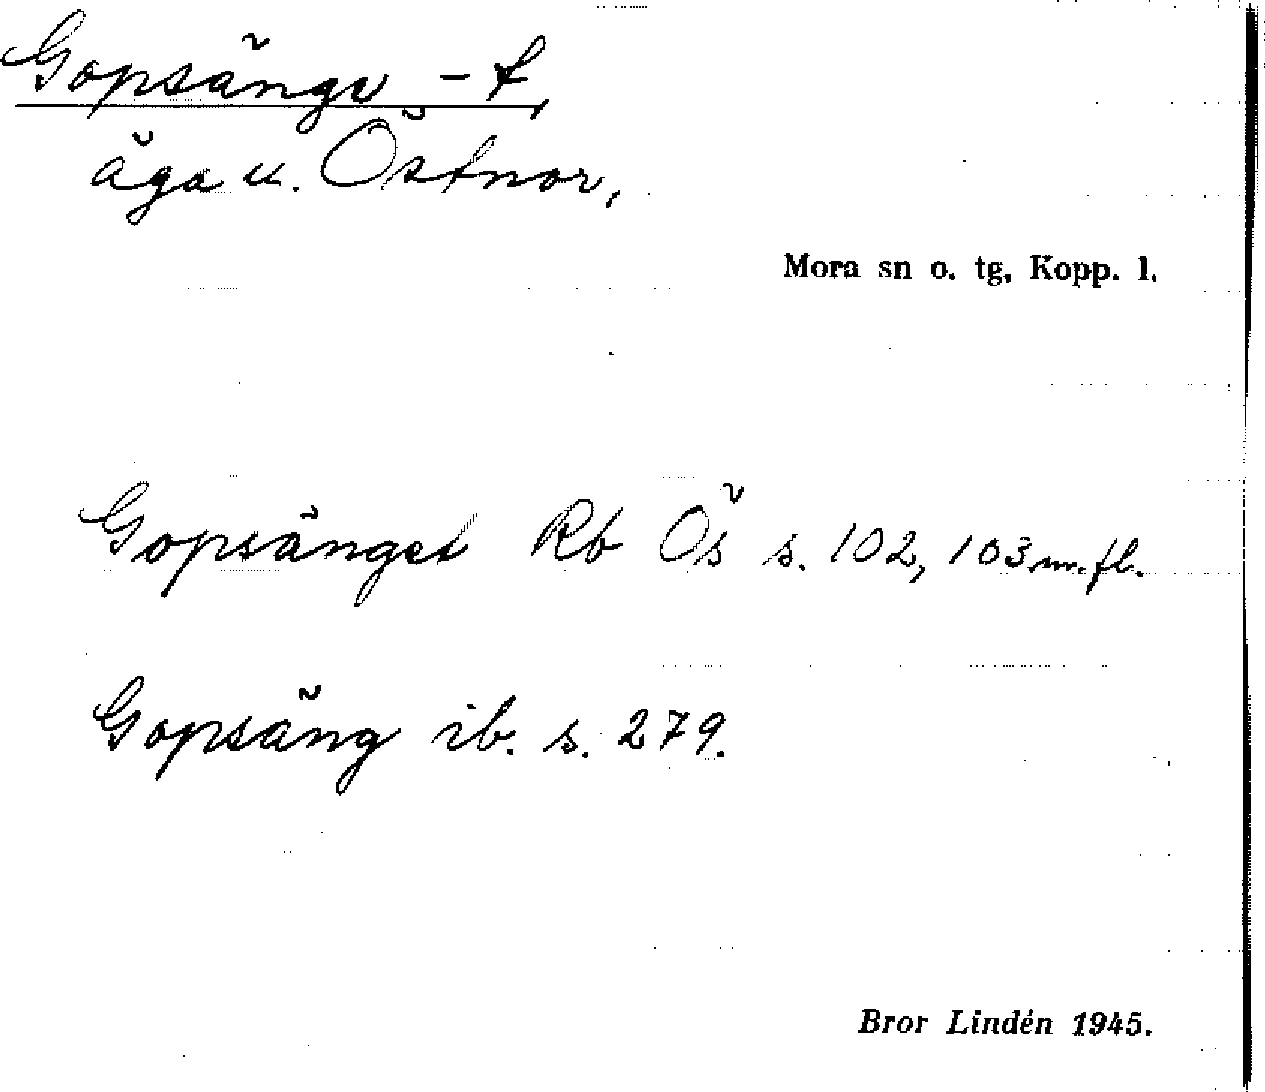 Gopsänge -t,
äga u. Östnor,
Mora sn o. tg, Kopp. l.
Gopsänget Rb Ös s. 102, 103 m. fl.
Gopsäng ib. s. 279.
Bror Lindén 1945.